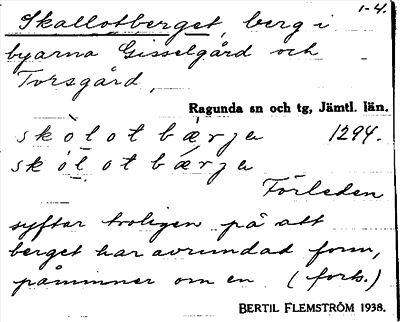 1-4.
Skallotberget, berg i
byarna Gisselgård och
Torsgård,
Ragunda sn och tg, Jämtl. län.
skòlotbærje 1294.
skólotbærje
Förleden
syftar troligen på att
berget har avrundad form,
påminner om en (forts.)
BERTIL FLEMSTRÖM 1938.